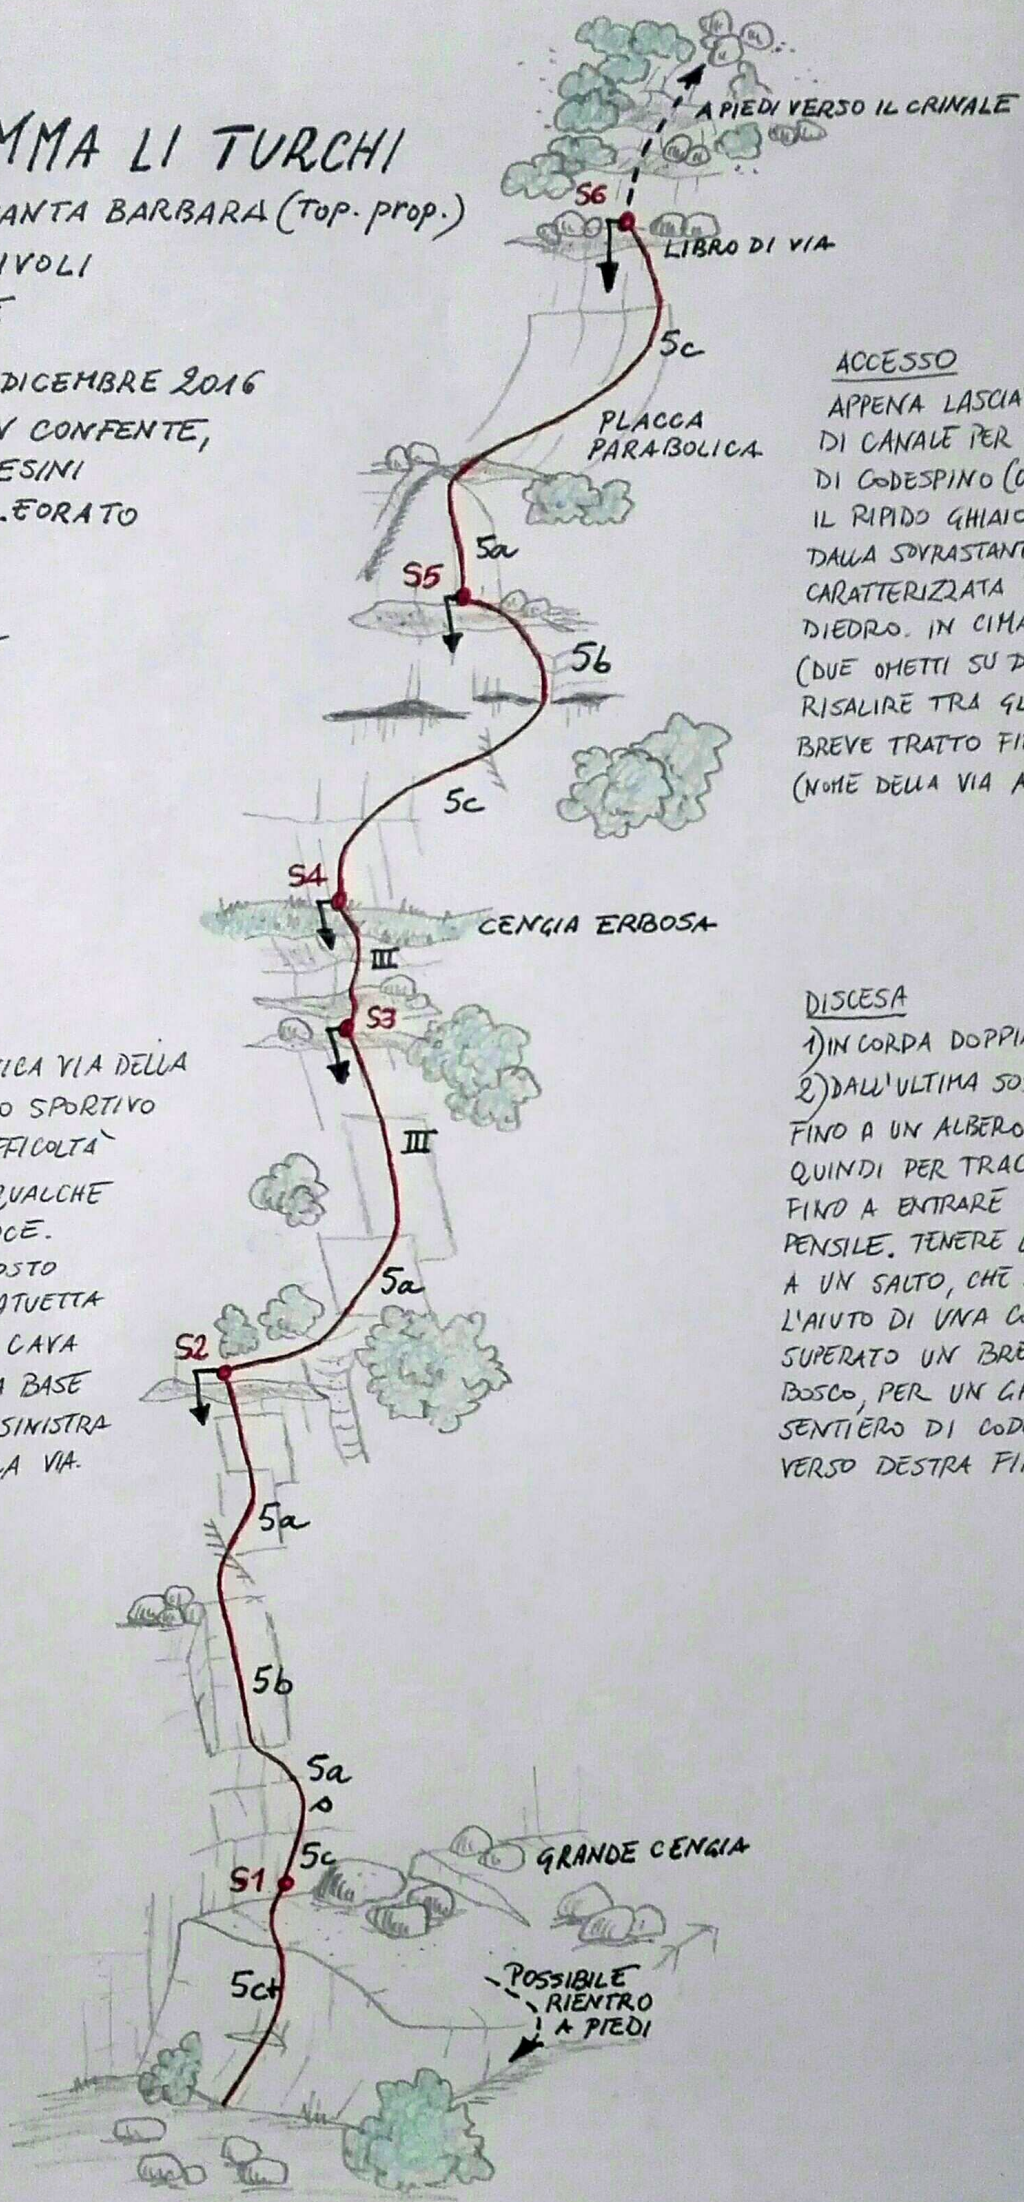 MMA LI TURCHI
ANTA BARBARA (TOP. PROP.)
IVOLI
DICEMBRE 2016
N CONFENTE,
ESINI
.FORATO
ICA VIA DELLA
O SPORTIVO
FFICOLTÀ
QUALCHE
OCE.
OSTO
ATUETTA
CAVA
A BASE
SINISTRA
LA VIA.
A PIEDI VERSO IL CRINALE
S6
LIBRO DI VIA
5c
PLACCA
PARABOLICA
5a
S5
5b
5c
S4
CENGIA ERBOSA
III
S3
III
5a
S2
5a
5b
5a
5c
S1
GRANDE CENGIA
5c+
POSSIBILE
RIENTRO
A PIEDI
ACCESSO
APPENA LASCIA
DI CANALE PER
DI CODESPINO (
IL RIPIDO GHIAIO
DALLA SOVRASTANT
CARATTERIZZATA
DIEDRO. IN CIMA
(DUE OMETTI SU D
RISALIRE TRA GL
BREVE TRATTO FI
(NOME DELLA VIA A
DISCESA
1) IN CORDA DOPPIA
2) DALL'ULTIMA SO
FINO A UN ALBERO
QUINDI PER TRAC
FINO A ENTRARE
PENSILE. TENERE L
A UN SALTO, CHE
L'AIUTO DI UNA CO
SUPERATO UN BRE
BOSCO, PER UN GH
SENTIERO DI COD
VERSO DESTRA FI